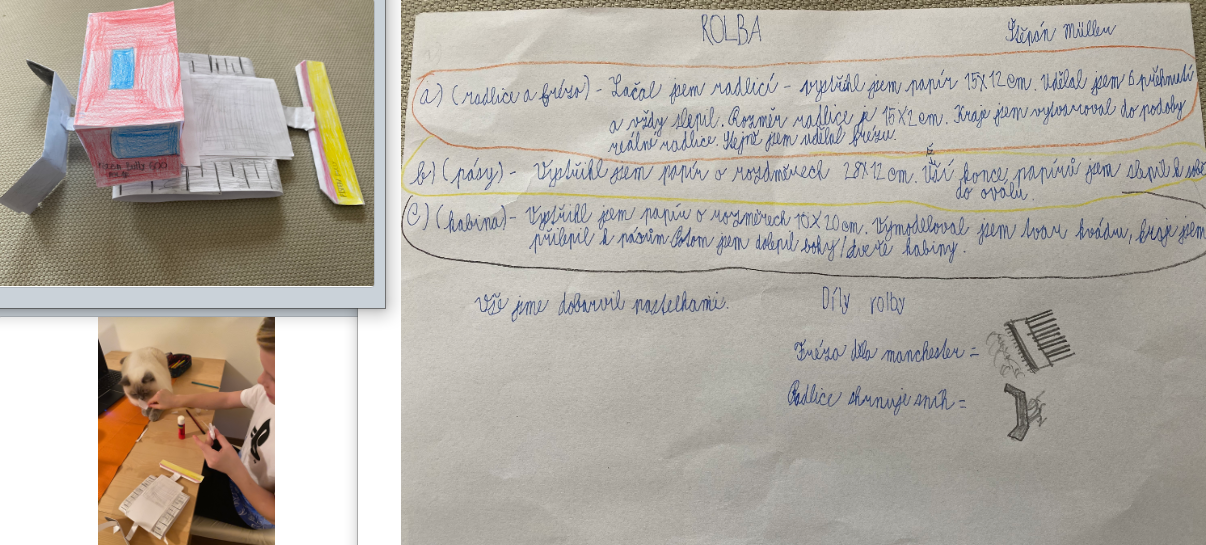 ROLBA
Štěpán Müller
a) (radlice a fréza) - Začal jsem radlicí - vystřihl jsem papír 15X12 cm. Udělal jsem 6 přehnutí
a vždy slepil. Rozměr radlice je 15X2 cm. Kraje jsem vytvaroval do podoby
reálné radlice. Stejně jsem udělal frézu.
b) (pásy) - Vystřihl jsem papír o rozměrech 28X12 cm. konce papírů jsem slepil k sobě
do oválu.
C) (kabina) - Vystřihl jsem papír o rozměrech 10X20 cm. Vymodeloval jsem tvar kvádru, kraje jsem
přilepil k pásům. Potom jsem dolepil boky/dveře kabiny.
Vše jsme dobarvil pastelkami.
Díly rolby
Fréza dělá manchester =
Radlice shrnuje sníh =